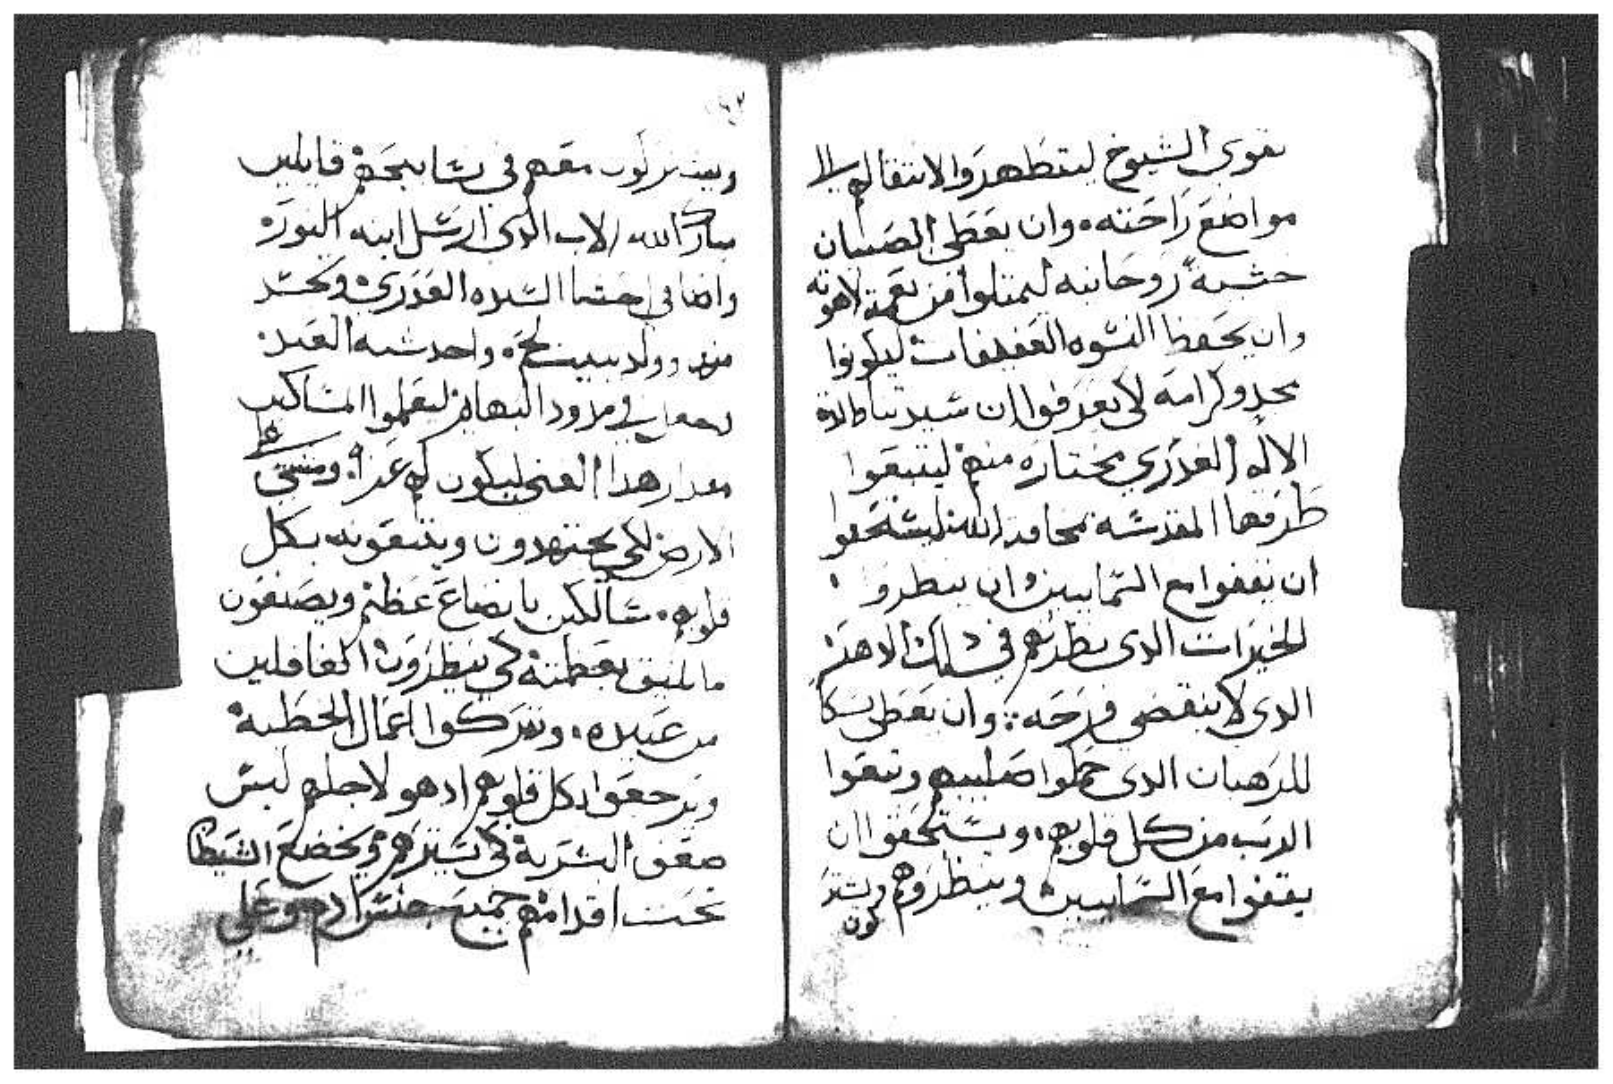 تقوى الشيوخ ليتطهروا لانتقالهم الى
مواضع راحته وان يعطى الصبيان
حشمة روحانيه ليمتلوا من نعمة لاهوته
وان يحفظ النسوه العفيفات ليكونوا
بمجد وكرامه لكى يعرفوا ان سيدتنا والدة
الاله العذرى مختاره منهم ليتبعوا
طرقها المقدسه بمحامد الله ليستحقوا
ان يقفوا مع السماييين وان ينظروا
الخيرات الذى نظرهم فى ذلك الاهتمام
الذى لا ينقضى فرحه وان يعطى نسكا
للرهبان الذى حملوا صليبهم وتبعوا
الرب من كل قلوبهم ويستحقوا ان
يقفوا مع السماييين وينظروهم ويشتركون
ويتنزلون معهم فى تسابيحهم قايلين
مبارك الله الاب الذى ارسل ابنه النور
واضا فى احشا السيده العذرى وتجسد
منها وولد ببيت لحم واخذ شبه العبد
وجعل فى مزود البهايم ليعلموا المساكين
مقدار هذا الغنى ليكون لهم عزا ومشى على
الارض لكى يجتهدون ويتبعونه بكل
قلوبهم سالكين باتضاع عظيم ويصنعون
ما يليق بعظمته لكى ينظرون الغافلين
من عبيده ويتركوا اعمال الخطيه
ويرجعوا بكل قلوبهم اذ هو لاجلهم لبس
ضعف البشريه لكى يسترهم ويخضع الشيطان
تحت اقدامهم جميع جنس ادم وعلى